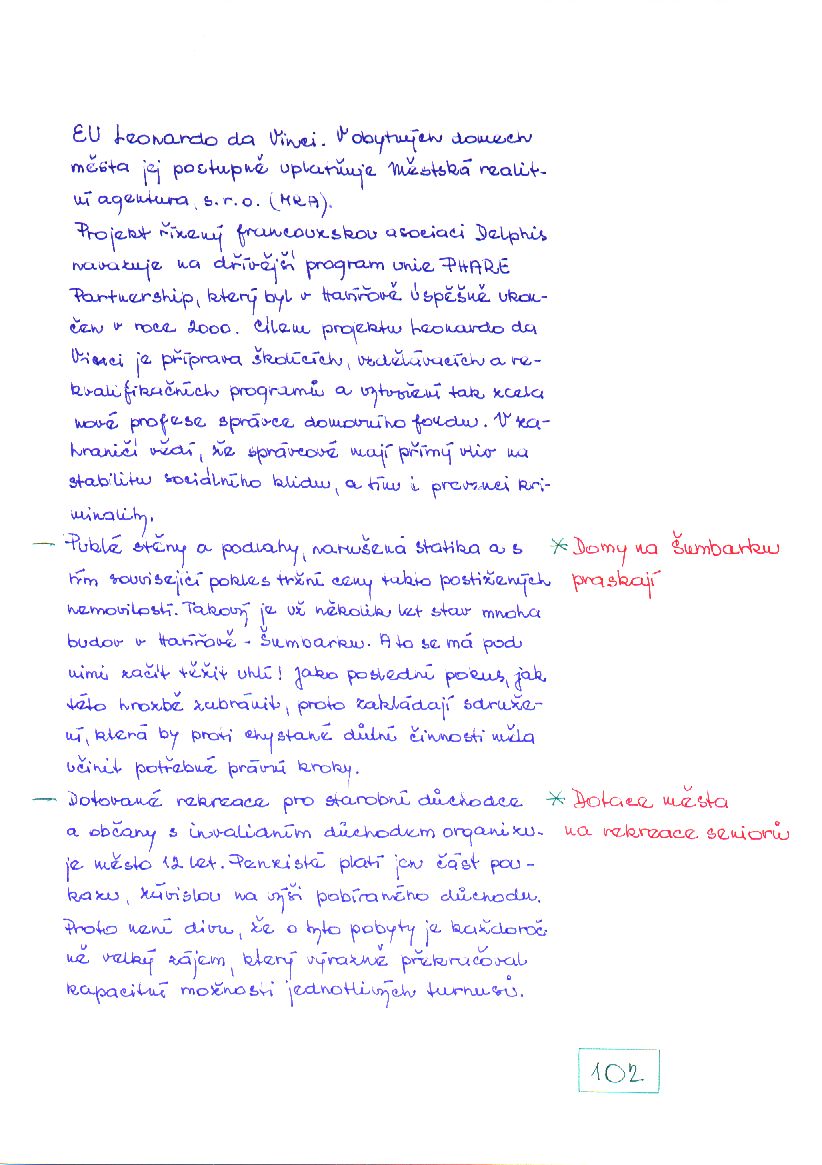 EU Leonardo da Vinci. V obytných domech
města jej postupně uplatňuje Městská realit-
ní agentura, s.r.o. (MRA).
Projekt řízený francouzskou asociací Delphis
navazuje na dřívější program unie PHARE
Partnership, který byl v Havířově úspěšně ukon-
čen v roce 2000. Cílem projektu Leonardo da
Vinci je příprava školících, vzdělávacích a re-
kvalifikačních programů a vytvoření tak zcela
nové profese správce domovního fondu. V za-
hraničí vědí, že správcové mají přímý vliv na
stabilitu sociálního klidu, a tím i prevenci kri-
minality.
— Puklé stěny a podlahy, narušená statika a s
tím související pokles tržní ceny takto postižených
nemovitostí. Takový je už několik let stav mnoha
budov v Havířově - Šumbarku. A to se má pod
nimi začít těžit uhlí! Jako poslední pokus, jak
této hrozbě zabránit, proto zakládají sdruže-
ní, která by proti chystané důlní činnosti měla
učinit potřebné právní kroky.
* Domy na Šumbarku
praskají
— Dotované rekreace pro starobní důchodce
a občany s invalidním důchodem organizu-
je město 12 let. Penzisté platí jen část pou-
kazu, závislou na výši pobíraného důchodu.
Proto není divu, že o tyto pobyty je každoroč
ně velký zájem, který výrazně překračoval
kapacitní možnosti jednotlivých turnusů.
* Dotace města
na rekreace seniorů
102